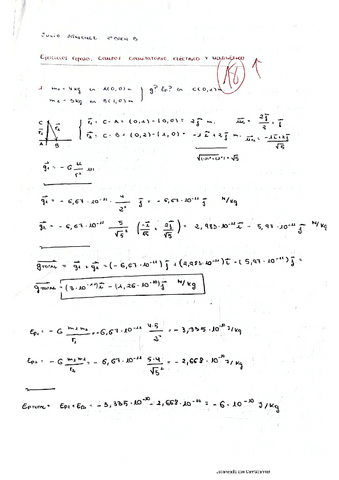 JULIO JIMÉNEZ 2º BACH B
EJERCICIOS REPASO. CAMPOS GRAVITATORIO, ELÉCTRICO Y MAGNÉTICO
10
1. m₁ = 4 kg en A(0,0) m
m₂ = 5 kg en B(1,0) m
g⃗? Ep? en C(0,2) m
C
r⃗₁ r⃗₂
A B
r⃗₁ = C - A = (0,2) - (0,0) = 2j⃗ m. u⃗r₁ = 2j⃗/2 = j⃗
r⃗₂ = C - B = (0,2) - (1,0) = -1i⃗ + 2j⃗ m. u⃗r₂ = (-1i⃗ + 2j⃗)/√5
g⃗ = - G M/r² u⃗r
g⃗₁ = - 6,67·10⁻¹¹ 4/2² j⃗ = - 6,67·10⁻¹¹ j⃗ N/kg
g⃗₂ = - 6,67·10⁻¹¹ 5/√5² (-i⃗/√5 + 2j⃗/√5) = 2,983·10⁻¹¹ i⃗ - 5,97·10⁻¹¹ j⃗ N/kg
g⃗total = g⃗₁ + g⃗₂ = (-6,67·10⁻¹¹)j⃗ + (2,983·10⁻¹¹)i⃗ - (5,97·10⁻¹¹)j⃗ =
g⃗total = (3·10⁻¹¹)i⃗ - (1,26·10⁻¹⁰)j⃗ N/kg
Ep₁ = - G m₁m₂/r₁ = - 6,67·10⁻¹¹ 4·5/2 = - 3,335·10⁻¹⁰ J/kg
Ep₂ = - G m₁m₂/r₂ = - 6,67·10⁻¹¹ 5·4/√5 = - 2,668·10⁻¹⁰ J/kg
Eptotal = Ep₁ + Ep₂ = - 3,335·10⁻¹⁰ - 2,668·10⁻¹⁰ = - 6·10⁻¹⁰ J/kg
Escaneado con CamScanner